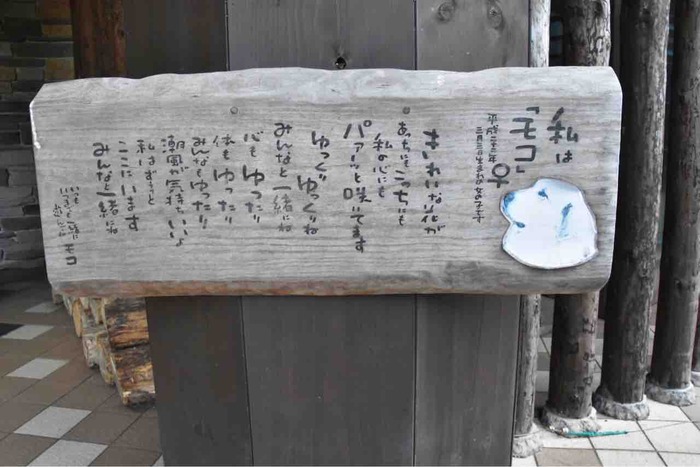 私は
「モコ」♀
平成二十二年
三月三日生まれの女の子です
きれいな花が
あっちにもこっちにも
私の心にも
パァーッと咲いてます
ゆっくりゆっくりね
みんなと一緒にね
心もゆったり
体もゆったり
みんなもゆったり
潮風が気持ちいいよ
私はずうっと
ここにいます
みんなと一緒にね
いつも
モコ